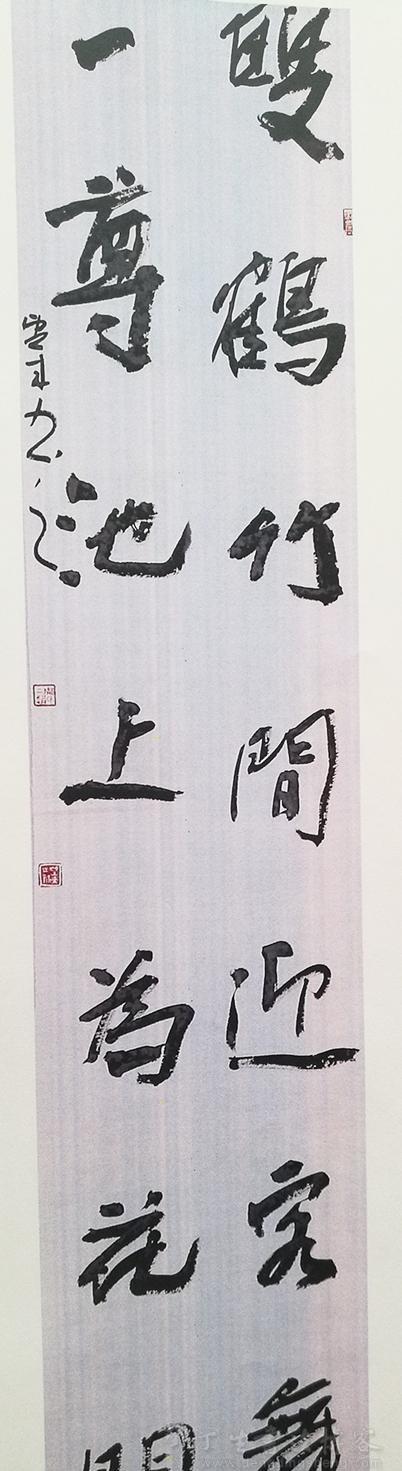 雙鶴竹間迎客舞
一尊池上為花開